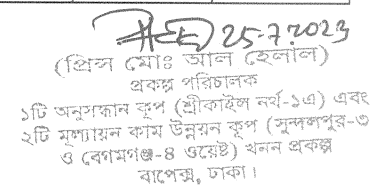 25-7.2023
(প্রিন্স মোঃ আল হেলাল)
প্রকল্প পরিচালক
১টি অনুসন্ধান কূপ (শ্রীকাইল নর্থ-১এ) এবং
২টি মূল্যায়ন কাম উন্নয়ন কূপ (সুন্দলপুর-৩
ও বেগমগঞ্জ-৪ ওয়েষ্ট) খনন প্রকল্প
বাপেক্স, ঢাকা।